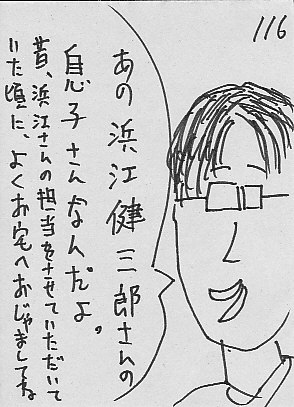 116
あの浜江健三郎さんの
息子さんなんだよ。
昔、浜江さんの担当をさせていただいて
いた頃に、よくお宅へおじゃましてね